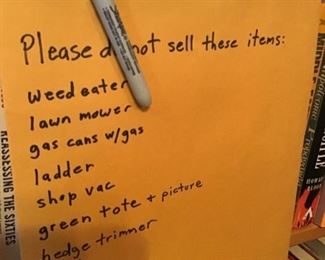 Please do not sell these items:
weed eater
lawn mower
gas cans w/gas
ladder
shop vac
green tote + picture
hedge trimmer
REASSESSING THE SIXTIES